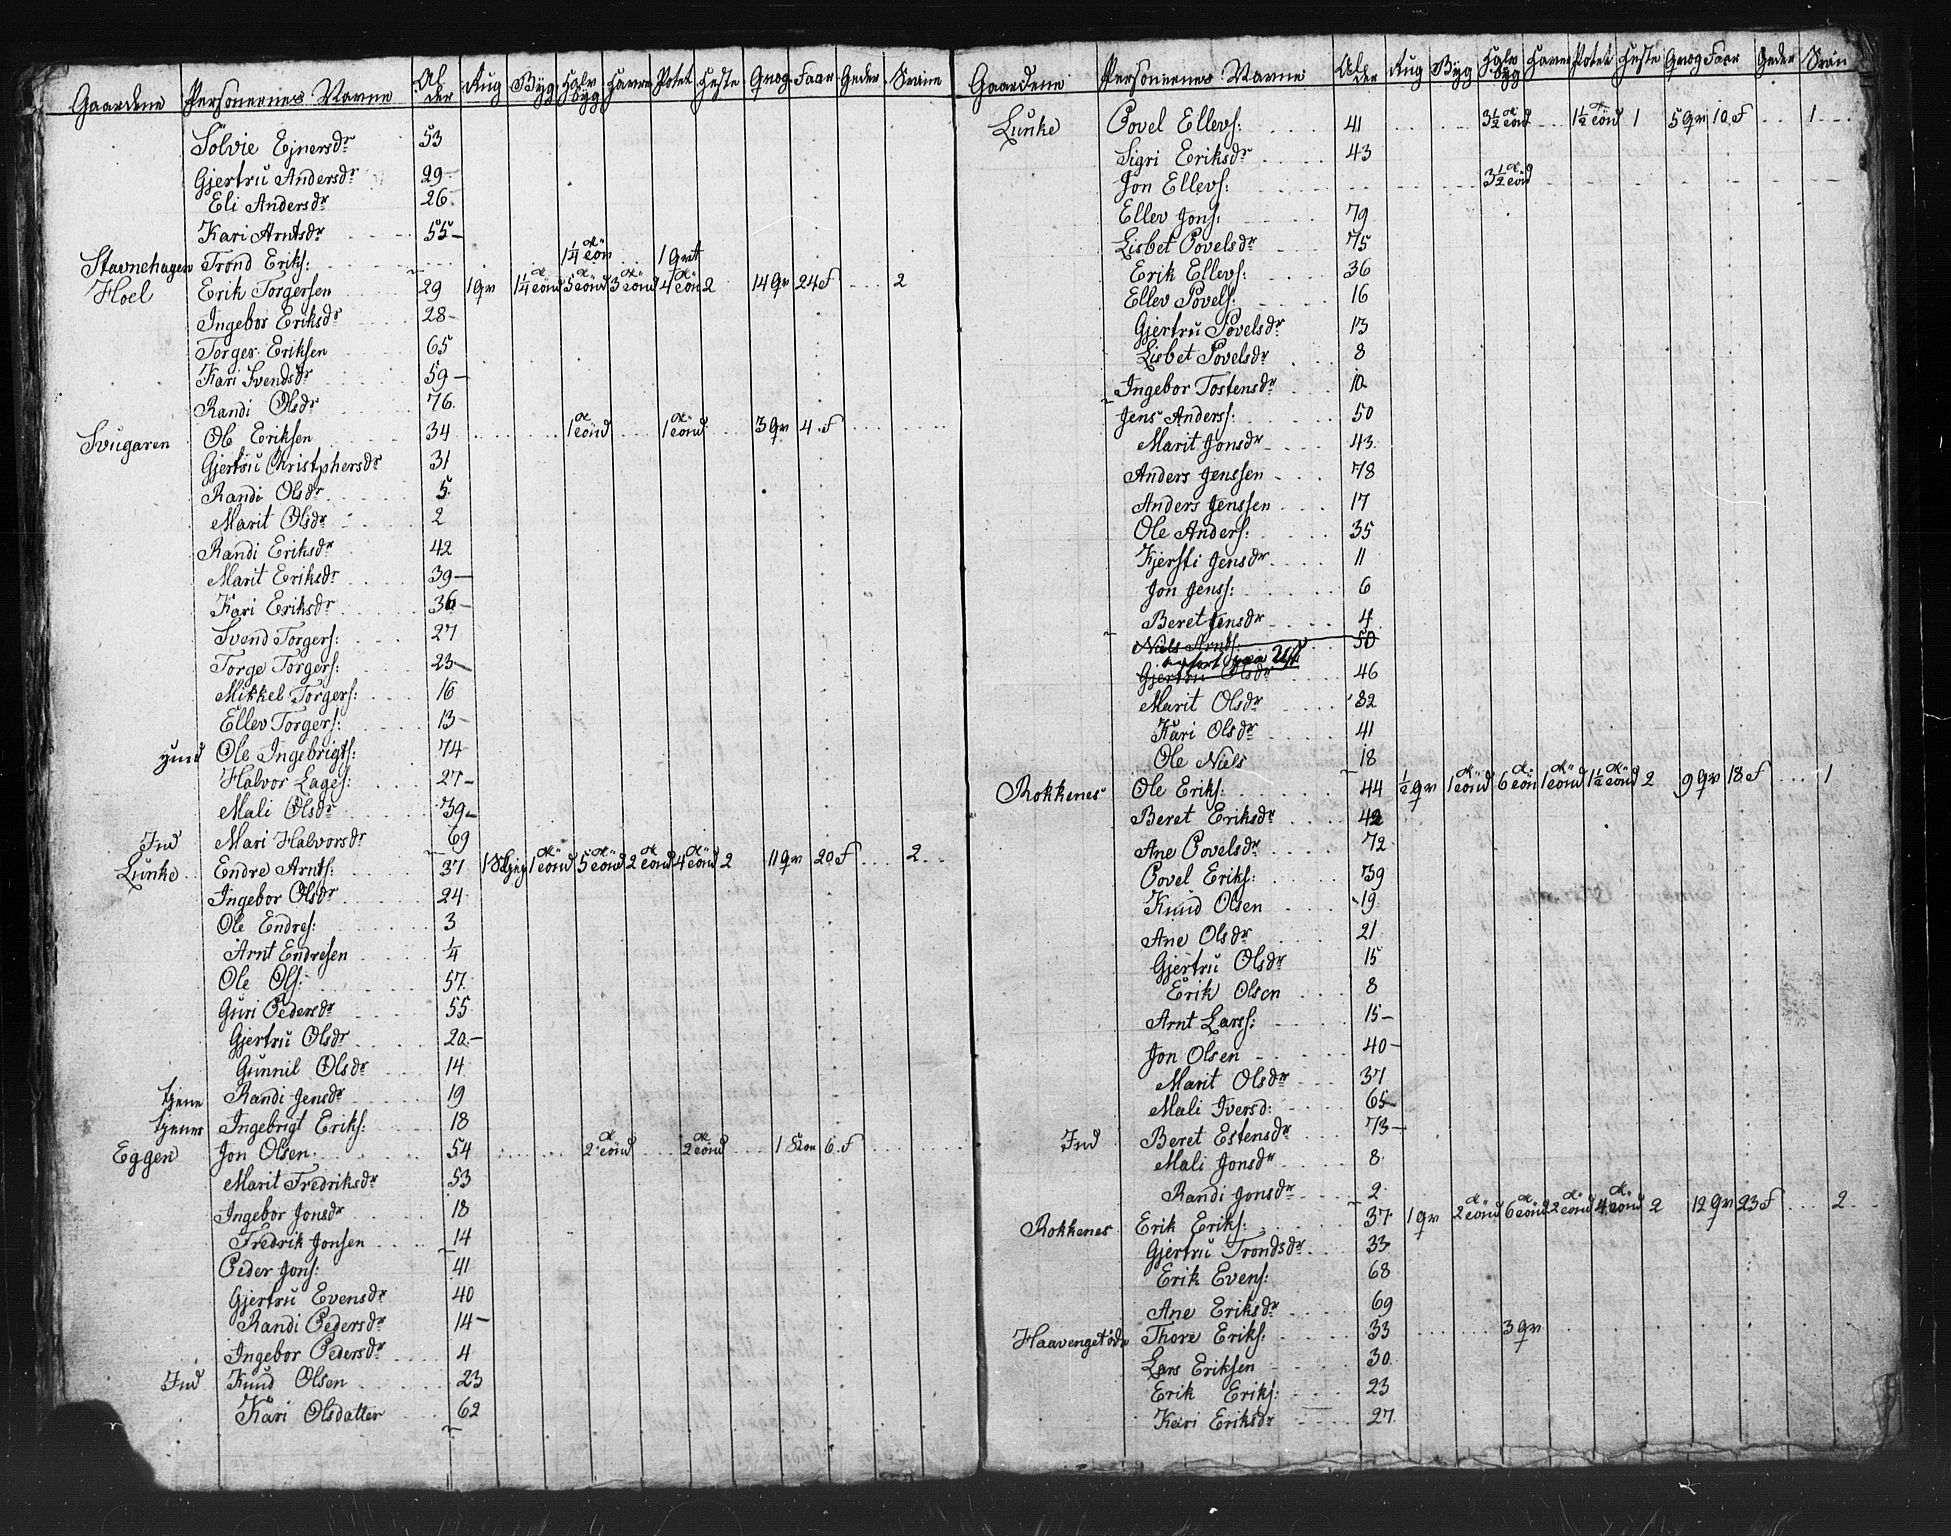 Gaardene Personernes Navne Alder Rug Byg Halv byg Havre Potet Heste Qvæg Faar Geder Sviine
Sölvie Ejnersdr 53
Gjertru Andersdr 29
Eli Andersdr 26
Kari Arntsdr 55
Stavnehagen Trond Eriks: 1/4 Tönd 1 Qvt
Hoel Erik Torgersen 29 1 Qv 1 1/4 Tönd 5 Tönd 3 Tönd 4 Tön 2 14 Qv 24 F 2
Ingebor Eriksdr 28
Torger Eriksen 65
Kari Svendsdr 59
Randi Olsdr 76
Svugaren Ole Eriksen 34 1 Tönd 1 Tönd 3 Qv 4 F
Gjertru Christphersdr 31
Randi Olsdr 5
Marit Olsdr 2
Randi Eriksdr 42
Marit Eriksdr 39
Kari Eriksdr 36
Svend Torgers: 27
Torge Torgers: 23
Mikkel Torgers: 16
Ellev Torgers: 13
Ind Ole Ingebrigts: 74
Halvor Lages: 27
Mali Olsdr 39
Ind Mari Halvorsdr 69
Lunke Endre Arnts: 37 1 1 Tönd 5 Tönd 2 Tönd 4 Tönd 2 11 Qv 20 F 2
Ingebor Olsdr 24
Ole Endres: 3
Arnt Endresen 1/4
Ole Ols: 57
Guri Pedersdr 55
Gjertru Olsdr 20
Gunnil Olsdr 14
tjene Randi Jensdr 19
tjener Ingebrigt Eriks: 18
Eggen Jon Olsen 54 2 Tönd 2 Tönd 1 Koe 6 F
Marit Fredriksdr 53
Ingebor Jonsdr 18
Fredrik Jonsen 14
Peder Jons: 41
Gjertru Evensdr 40
Randi Pedersdr 14
Ingebor Pedersdr 4
Ind Knud Olsen 23
Kari Olsdatter 62
Gaardene Personernes Navne Alder Rug Byg Halv byg Havre Potet Heste Qvæg Faar Geder Sviin
Lunke Povel Ellevs: 41 3 1/2 Tönd 1 1/2 Tönd 1 5 Qv 10 F 1
Sigri Eriksdr 43
Jon Ellevs: 3 1/2 Tönd
Ellev Jons: 79
Lisbet Povelsdr 75
Erik Ellevs: 36
Ellev Povels: 16
Gjertru Povelsdr 13
Lisbet Povelsdr 8
Ingebor Tostensdr 10
Jens Anderss: 50
Marit Jonsdr 43
Anders Jenssen 78
Anders Jenssen 17
Ole Anders: 35
Kjersti Jensdr 11
Jon Jenss: 6
Beret Jensdr 4
Niels Arnts: 50
Gjertru Olsdr 46
Marit Olsdr 82
Kari Olsdr 41
Ole Niels 18
Rokkenes Ole Eriks: 44 1/2 Qv 1 Tönd 6 Tön 1 Tönd 1 1/2 Tönd 2 9 Qv 18 F 1
Beret Eriksdr 42
Ane Povelsdr 72
Povel Eriks: 39
Knud Olsen 19
Ane Olsdr 21
Gjertru Olsdr 15
Erik Olsen 8
Arnt Larss: 15
Jon Olsen 40
Marit Olsdr 37
Mali Iversd: 65
Ind Beret Estensdr 73
Mali Jonsdr 8
Randi Jonsdr 2
Rokkenes Erik Eriks: 37 1 Qv 2 Tönd 6 Tönd 2 Tönd 4 Tönd 2 12 Qv 23 F 2
Gjertru Trondsdr 33
Erik Evens: 68
Ane Eriksdr 69
Haavengetödr Thore Eriks: 33 3 Qv
Lars Eriksen 30
Erik Eriks: 23
Kari Eriksdr 27